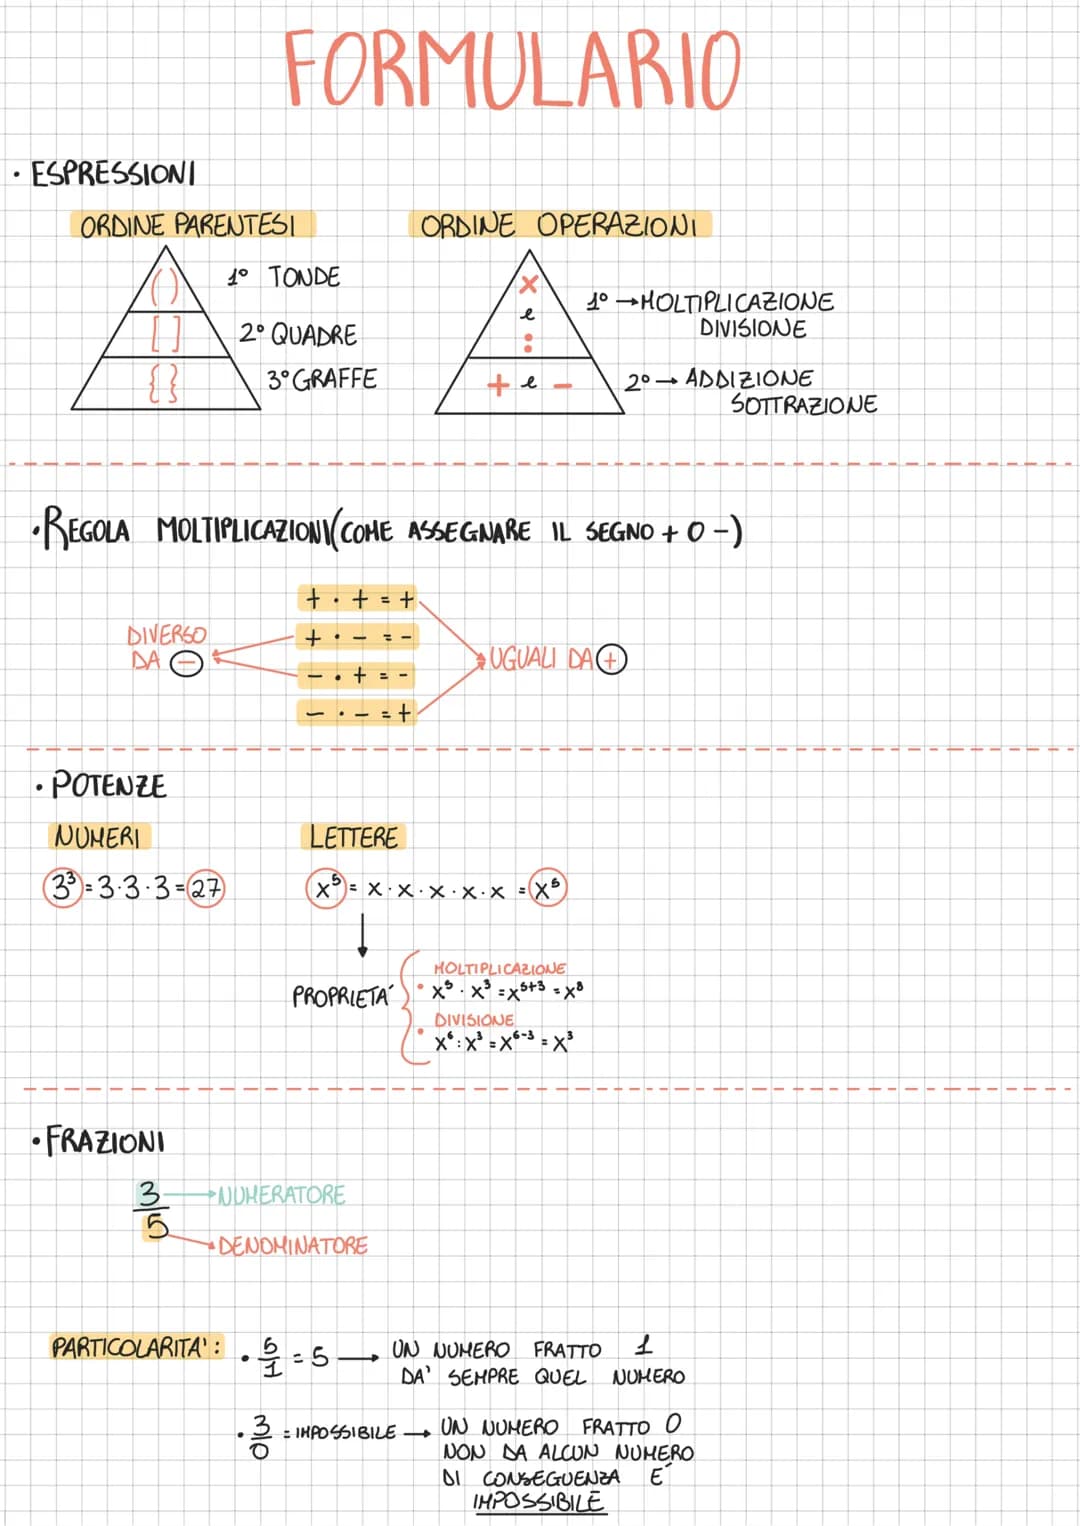 FORMULARIO
· ESPRESSIONI
ORDINE PARENTESI
( )
1° TONDE
[ ]
2° QUADRE
{ }
3° GRAFFE
ORDINE OPERAZIONI
×
e
:
1° → MOLTIPLICAZIONE
DIVISIONE
+ e -
2° → ADDIZIONE
SOTTRAZIONE
· REGOLA MOLTIPLICAZIONI (COME ASSEGNARE IL SEGNO + O -)
+ · + = +
+ · - = -
- · + = -
- · - = +
DIVERSO
DA -
UGUALI DA +
· POTENZE
NUMERI
3³ = 3·3·3 = 27
LETTERE
x⁵ = x · x · x · x · x = x⁵
PROPRIETA'
MOLTIPLICAZIONE
· x⁵ · x³ = x⁵⁺³ = x⁸
· DIVISIONE
x⁶ : x³ = x⁶⁻³ = x³
· FRAZIONI
3 → NUMERATORE
5 → DENOMINATORE
PARTICOLARITA' :
· 5/1 = 5 → UN NUMERO FRATTO 1
DA' SEMPRE QUEL NUMERO
· 3/0 = IMPOSSIBILE → UN NUMERO FRATTO 0
NON DA ALCUN NUMERO
DI CONSEGUENZA E'
IMPOSSIBILE